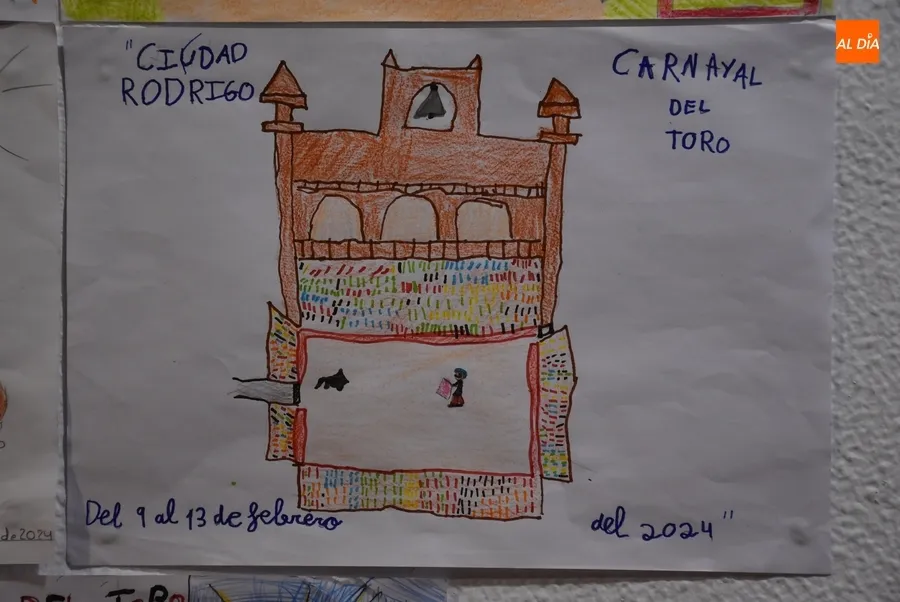 AL DÍA
"CIUDAD
RODRIGO
CARNAVAL
DEL
TORO
Del 9 al 13 de febrero
del 2024"
de 2024
DEL TORO